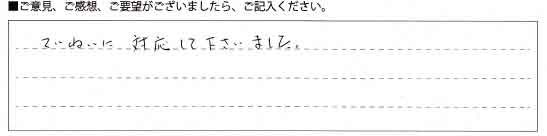 ■ご意見、ご感想、ご要望がございましたら、ご記入ください。
ていねいに 対応して下さいました。